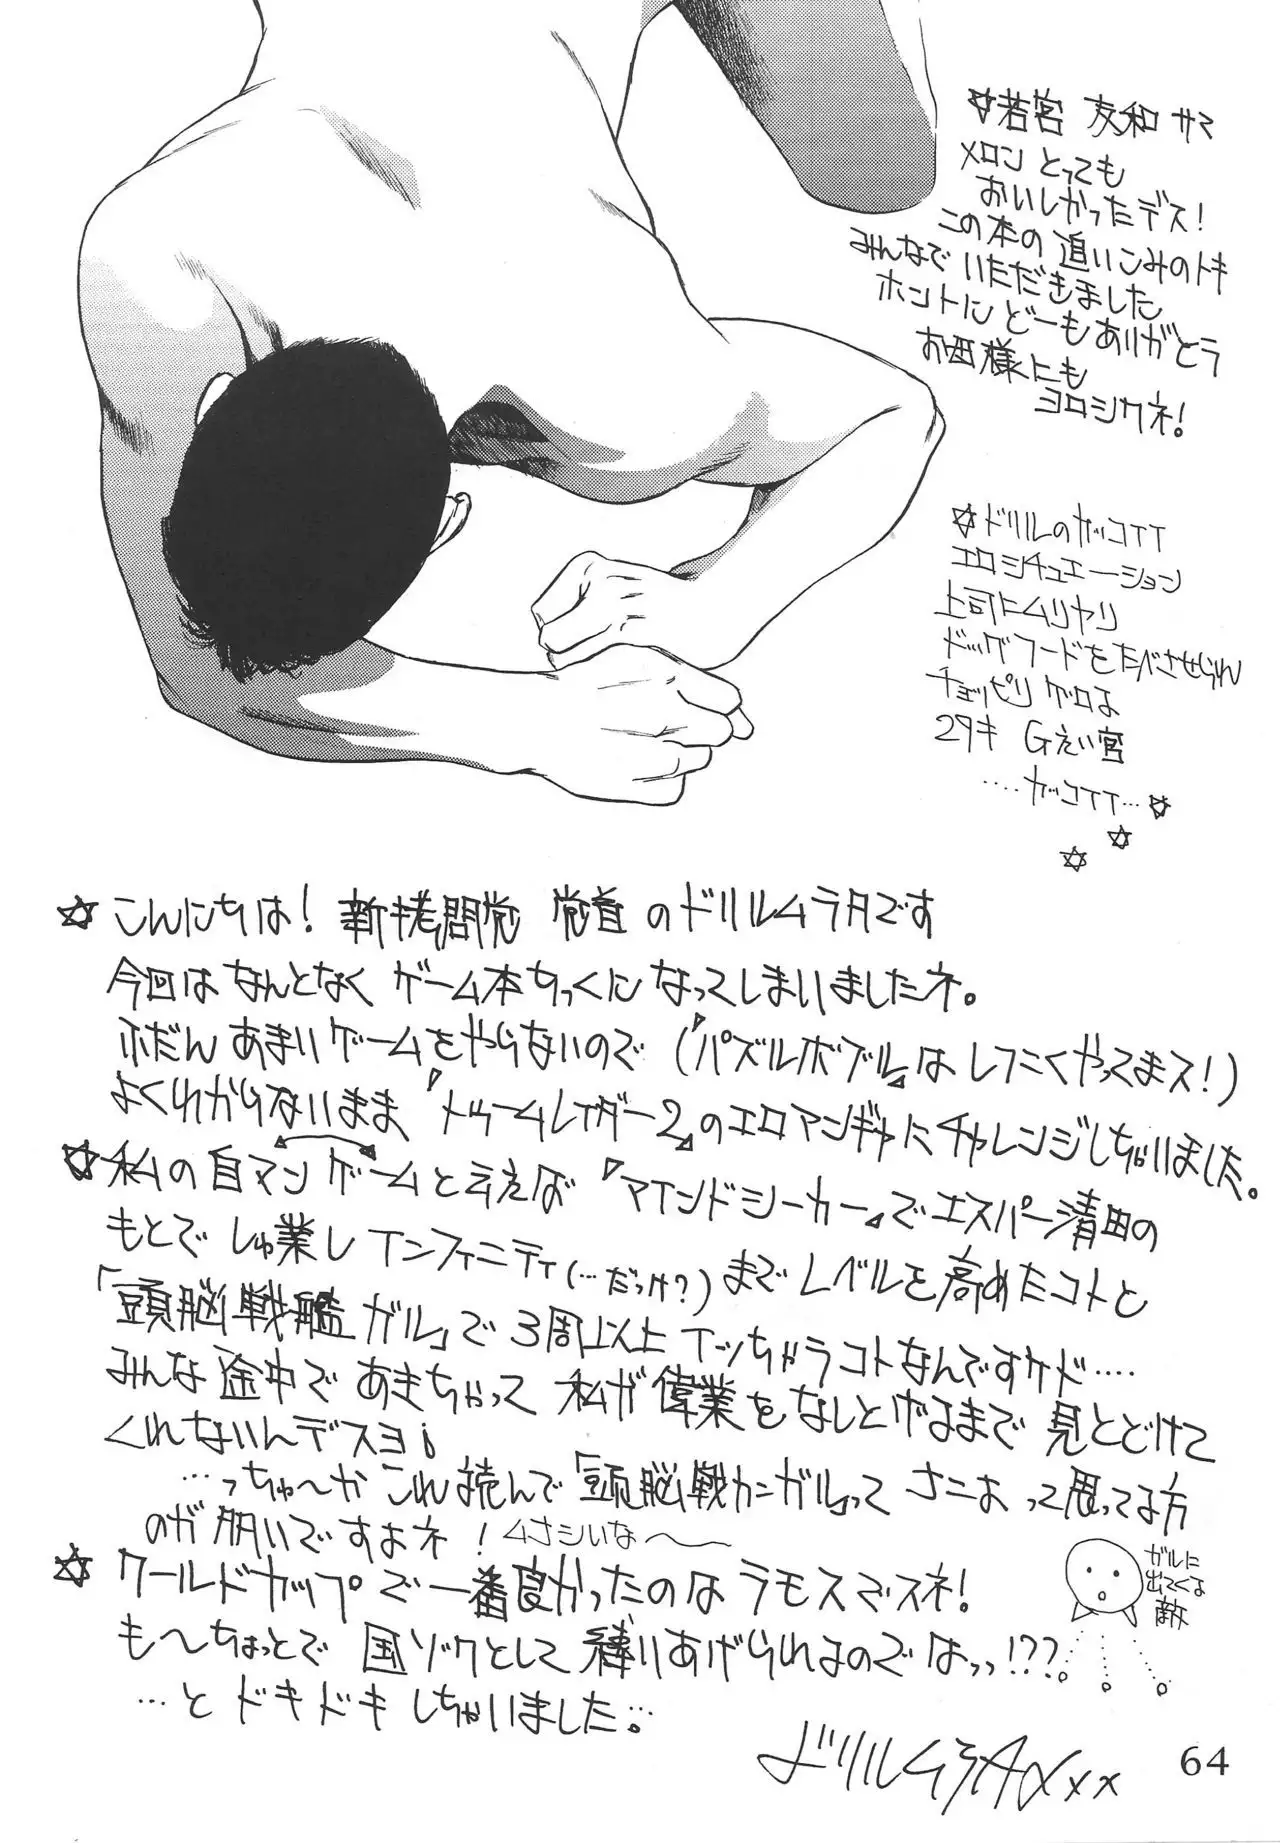 ☆若宮 友和 サマ
メロン とっても
おいしかったデス!
この本の 追いこみのトキ
みんなで いただきました
ホントに どーもありがとう
お母様にも
ヨロシクネ!
☆ドリルのカッコイイ
エロシチュエーション
上司にムリヤリ
ドッグフードをたべさせられ
チョッピリゲロる
29才 Gえい官
….カッコイイ…☆
☆
☆
☆こんにちは! 新拷問党 党首 のドリルムラタです
今回は なんとなく ゲーム本ちっくに なってしまいましたネ。
ふだん あまりゲームをやらないので(『パズルボブル』は しつこくやってまス!)
よくわからないまま『トゥームレイダー2』のエロマンガにチャレンジしちゃいました。
☆私の 自マン ゲームと言えば 『マインドシーカー』で エスパー清田の
もとで しゅ業し インフィニティ(…だっけ?)まで レベルを高めたコトと
「頭脳戦艦ガル」で 3周以上 イッちゃうコトなんですケド….
みんな 途中で あきちゃって 私が偉業を なしとげるまで 見とどけて
くれないんデスヨ!
…っちゅ〜か これ読んで「頭脳戦カンガル」って さこよって思ってる方
のが 多いですよネ! ムナシいな〜
ガルに
出てくる
敵
☆ ワールドカップで 一番良かったのは ラモスでスネ!
も〜ちょっとで 国ゾクとして 縛りあげられるのでは っっ!???。
…と ドキドキ しちゃいました。
ドリルムラタxxx
64